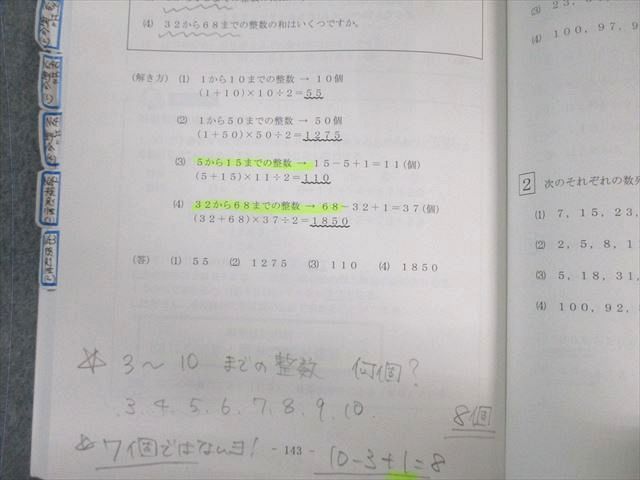 (4) 32から68までの整数の和はいくつですか。
(解き方) (1) 1から10までの整数 → 10個
(1+10)×10÷2=55
(2) 1から50までの整数 → 50個
(1+50)×50÷2=1275
(3) 5から15までの整数 → 15-5+1=11(個)
(5+15)×11÷2=110
(4) 32から68までの整数 → 68-32+1=37(個)
(32+68)×37÷2=1850
(答) (1) 55 (2) 1275 (3) 110 (4) 1850
☆ 3〜10 までの整数 何個?
3. 4. 5. 6. 7. 8. 9. 10.
8個
☆ 7個ではないヨ!
- 143 -
10-3+1=8
(3) 23,
(4) 100, 97, 9
2 次のそれぞれの数列
(1) 7, 15, 23,
(2) 2, 5, 8, 1
(3) 5, 18, 31,
(4) 100, 92,